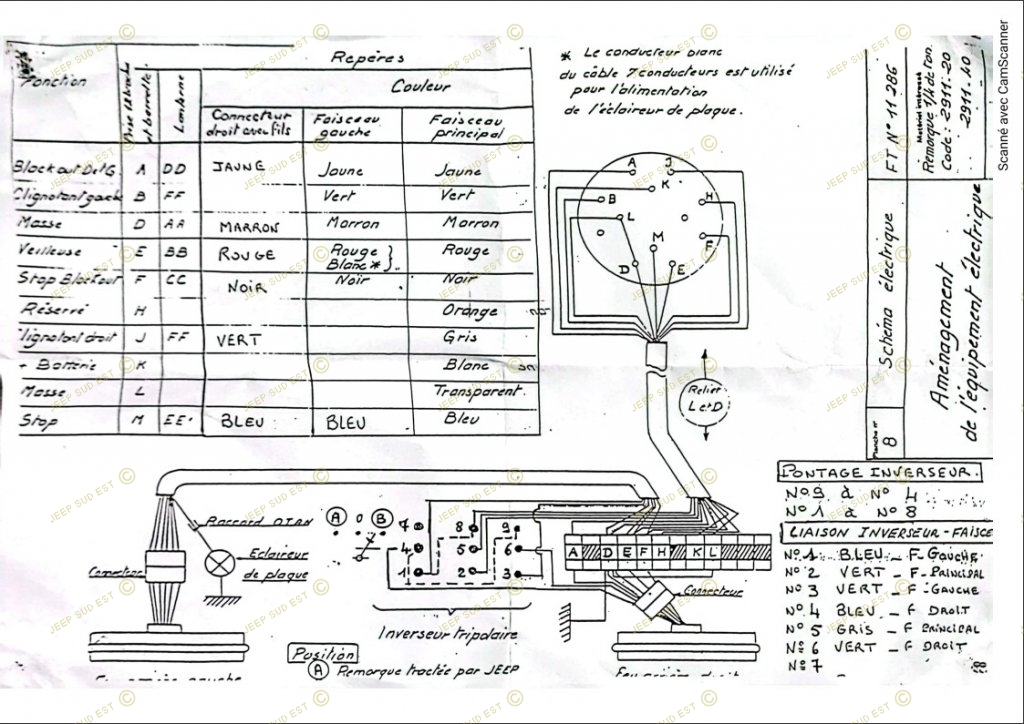 Repères
* Le conducteur blanc
du câble 7 conducteurs est utilisé
pour l'alimentation
de l'éclaireur de plaque.
Fonction
Lanterne
Couleur
Connecteur droit avec fils
Faisceau gauche
Faisceau principal
Blackout D et G. A DD JAUNE Jaune Jaune
Clignotant gauche B FF Vert Vert
Masse D AA MARRON Marron Marron
Veilleuse E BB ROUGE Rouge Rouge
Blanc *
Stop Blackout F CC NOIR Noir Noir
Réservé H Orange
Clignotant droit J FF VERT Gris
+ Batterie K Blanc
Masse L Transparent.
Stop M EE BLEU BLEU Bleu
A J
K
B H
L
M F
D E
Relier
L et D
FT N° 11 286
Remarque 1/4 de ton.
Code: 2911.20
2911.40
Schéma électrique
Planche n°
8
Aménagement
de l'équipement électrique
Scanné avec CamScanner
PONTAGE INVERSEUR.
N° 9 à N° 4
N° 1 à N° 8
LIAISON INVERSEUR - FAISCE
N° 1 BLEU - F. GAUCHE.
N° 2 VERT - F. PRINCIPAL
N° 3 VERT - F. GAUCHE
N° 4 BLEU - F DROIT
N° 5 GRIS - F PRINCIPAL
N° 6 VERT - F. DROIT
N° 7
Raccord OTAN
A O B
7 8 9
4 5 6
1 2 3
A D E F H K L
Connecteur
Eclaireur
de plaque
Connecteur
Inverseur tripolaire
Position
A Remorque tractée par JEEP
JEEP SUD EST ©